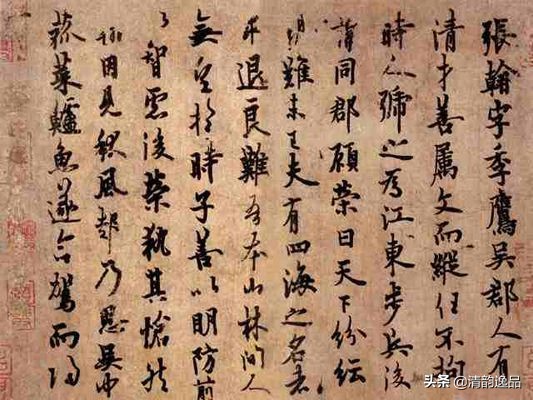 張翰字季鷹吳郡人有
清才善属文而縱任不拘
時人號之為江東步兵後
謂同郡顧榮曰天下紛紜
禍難未已夫有四海之名者
求退良難吾本山林間人
無望於時子善以明防前
以智慮後榮執其愴然
翰因見秋風起乃思吳中
菰菜鱸魚遂命駕而歸
头条 @清韵逸品